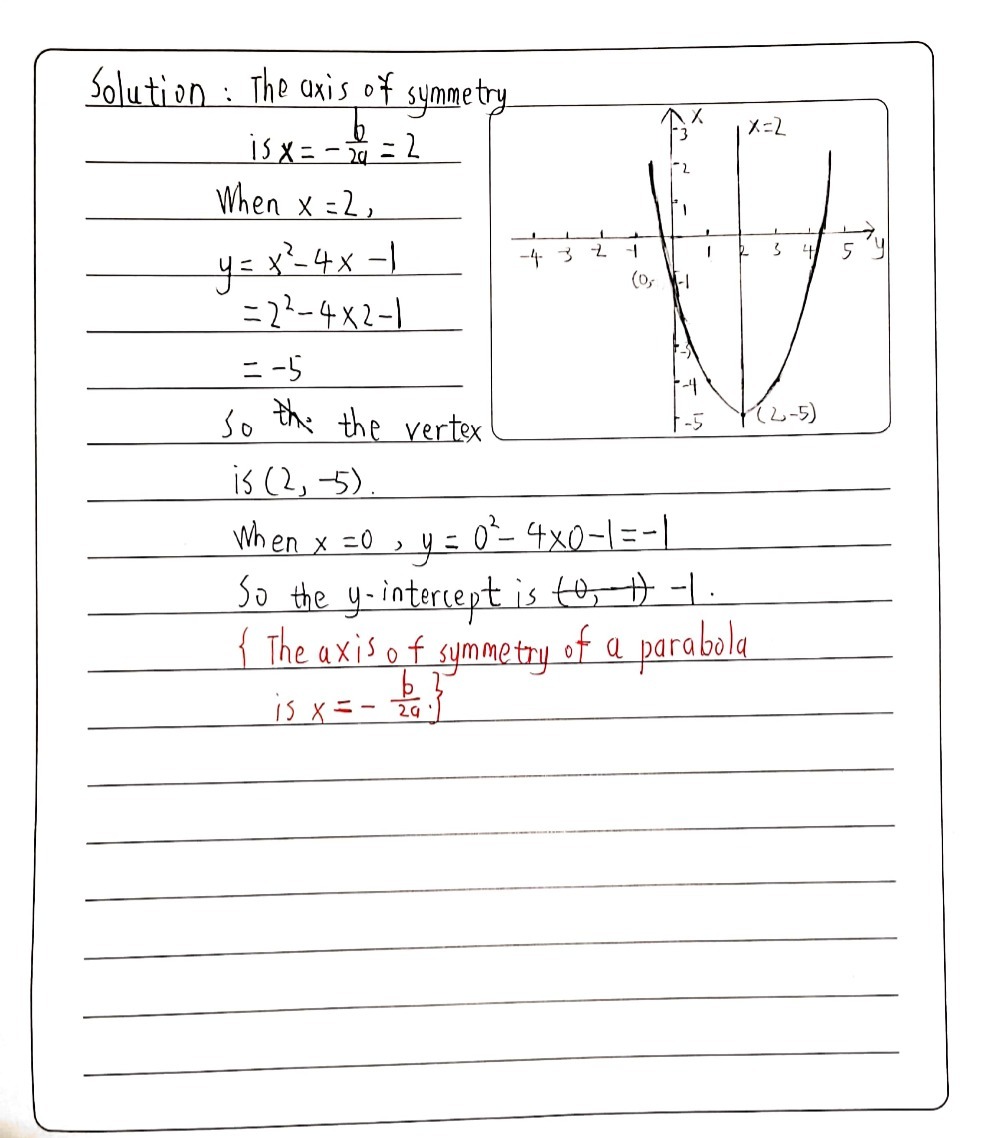 Solution : The axis of symmetry
is x = - b/2a = 2
When x = 2,
y = x² - 4x - 1
= 2² - 4 x 2 - 1
= -5
So the the vertex
is (2, -5).
When x = 0 , y = 0² - 4x0 - 1 = -1
So the y-intercept is (0, -1) -1 .
{ The axis of symmetry of a parabola
is x = - b/2a . }
x
x=2
3
2
1
-4 -3 -2 -1 1 2 3 4 5 y
(0, -1
-3
-4
-5
(2,-5)